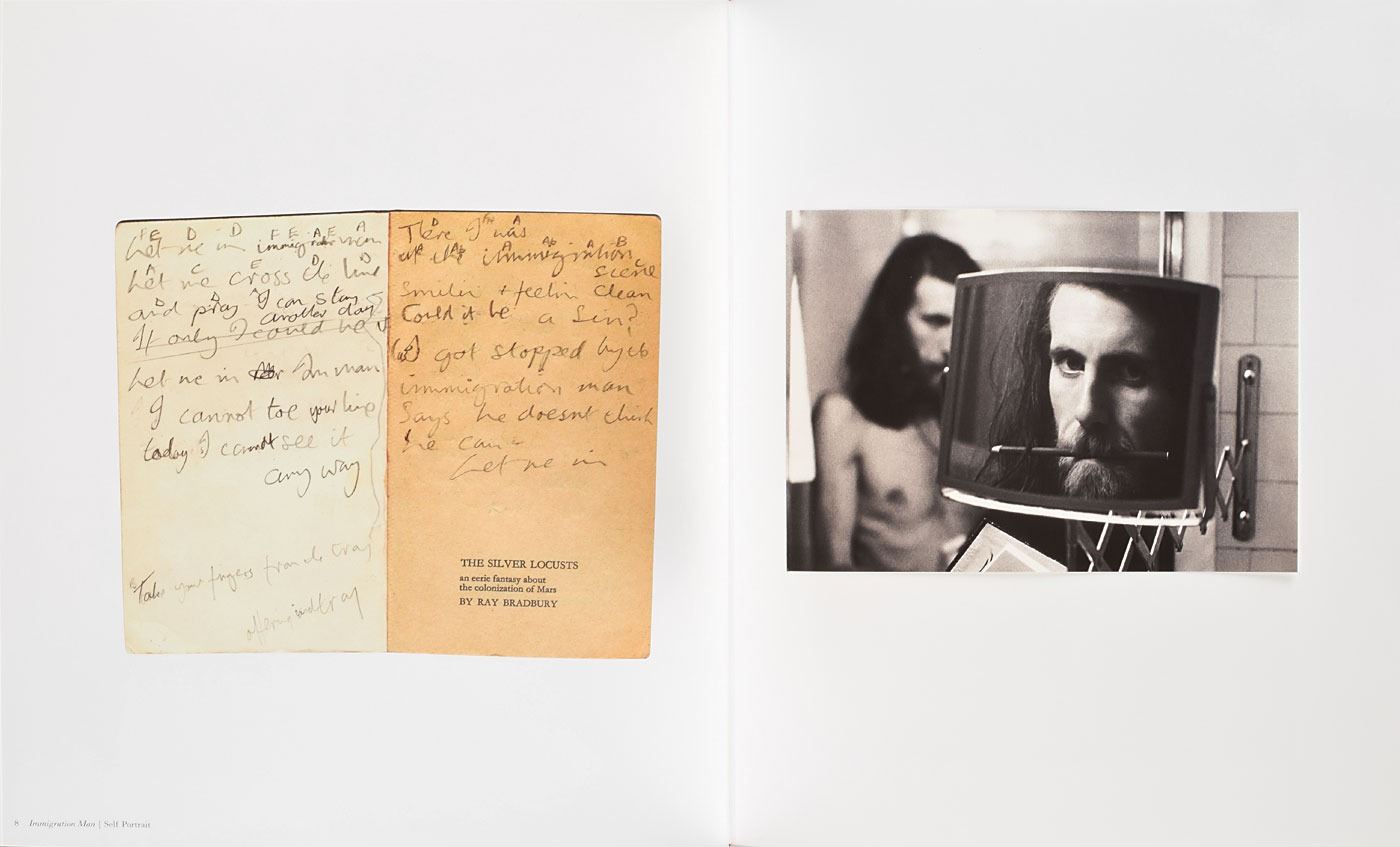 Let me in immigration man
Let me cross the line
and pray I can stay
another day
If only I could be
Let me in Im man
I cannot toe your line
today I cannot see it
any way
Take your fingers from the tray
offering
There I was
at the immigration
scene
Smilin + feelin clean
Could it be a Sin?
I got stopped by the
immigration man
Says he doesnt think
he can
Let me in
THE SILVER LOCUSTS
an eerie fantasy about
the colonization of Mars
BY RAY BRADBURY
8 Immigration Man | Self Portrait